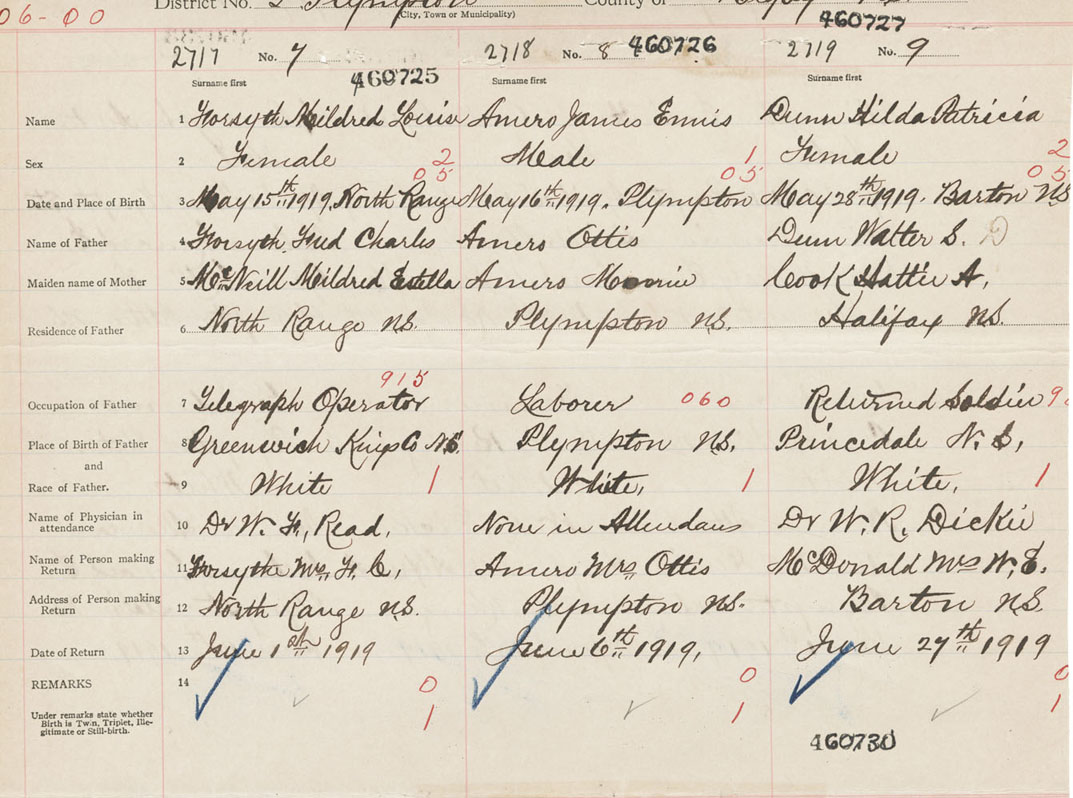 06-00 District No. 2 Plympton County of Digby N.S.
(City, Town or Municipality)
460727
2717 No. 7 2718 No. 8 460726 2719 No. 9
Surname first 460725 Surname first Surname first
Name 1 Forsyth Mildred Louise Amero James Ennis Dunn Hilda Patricia
Sex 2 Female 2 Meale 1 Female 2
05 05 05
Date and Place of Birth 3 May 15th 1919, North Range May 16th 1919. Plympton May 28th 1919. Barton NS
Name of Father 4 Forsyth Fred Charles Amero Ottis Dunn Walter S. D
Maiden name of Mother 5 McNeill Mildred Estella Amero Monnie Cook Hattie A,
Residence of Father 6 North Range N.S. Plympton N.S. Halifax N.S.
915
Occupation of Father 7 Telegraph Operator Laborer 060 Returned Soldier 9
Place of Birth of Father 8 Greenwich Kings Co N.S. Plympton N.S. Princedale N.S,
and
Race of Father. 9 White 1 White, 1 White, 1
Name of Physician in
attendance 10 Dr W. F, Read, None in Attendans Dr W. R. Dickie
Name of Person making
Return 11 Forsythe Mrs F. C, Amero Mrs Ottis McDonald Mrs W. E.
Address of Person making
Return 12 North Range N.S. Plympton N.S. Barton N.S.
Date of Return 13 June 1st 1919 June 6th 1919, June 27th 1919
REMARKS 14 0 0 0
Under remarks state whether
Birth is Twin, Triplet, Ille-
gitimate or Still-birth. 1 1 1
460730